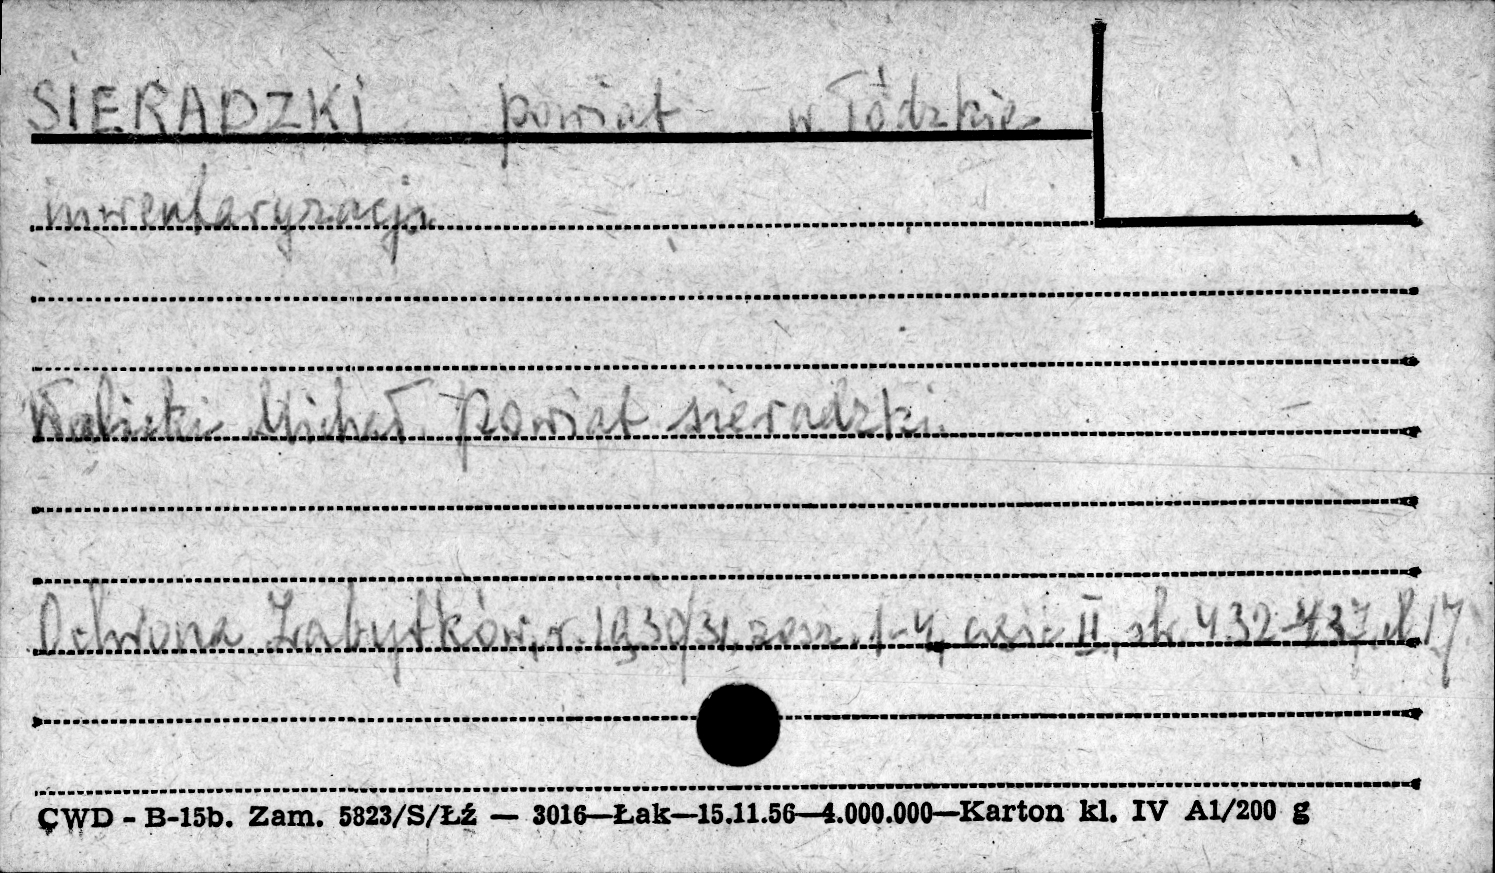 SIERADZKI powiat w. łódzkie
inwentaryzacja
Walicki Michał. Powiat sieradzki.
Ochrona Zabytków, r. 1930/31, zesz. 1-4, część II, str. 432-437, il 17
CWD - B-15b. Zam. 5823/S/Łź — 3016—Łak—15.11.56—4.000.000—Karton kl. IV A1/200 g